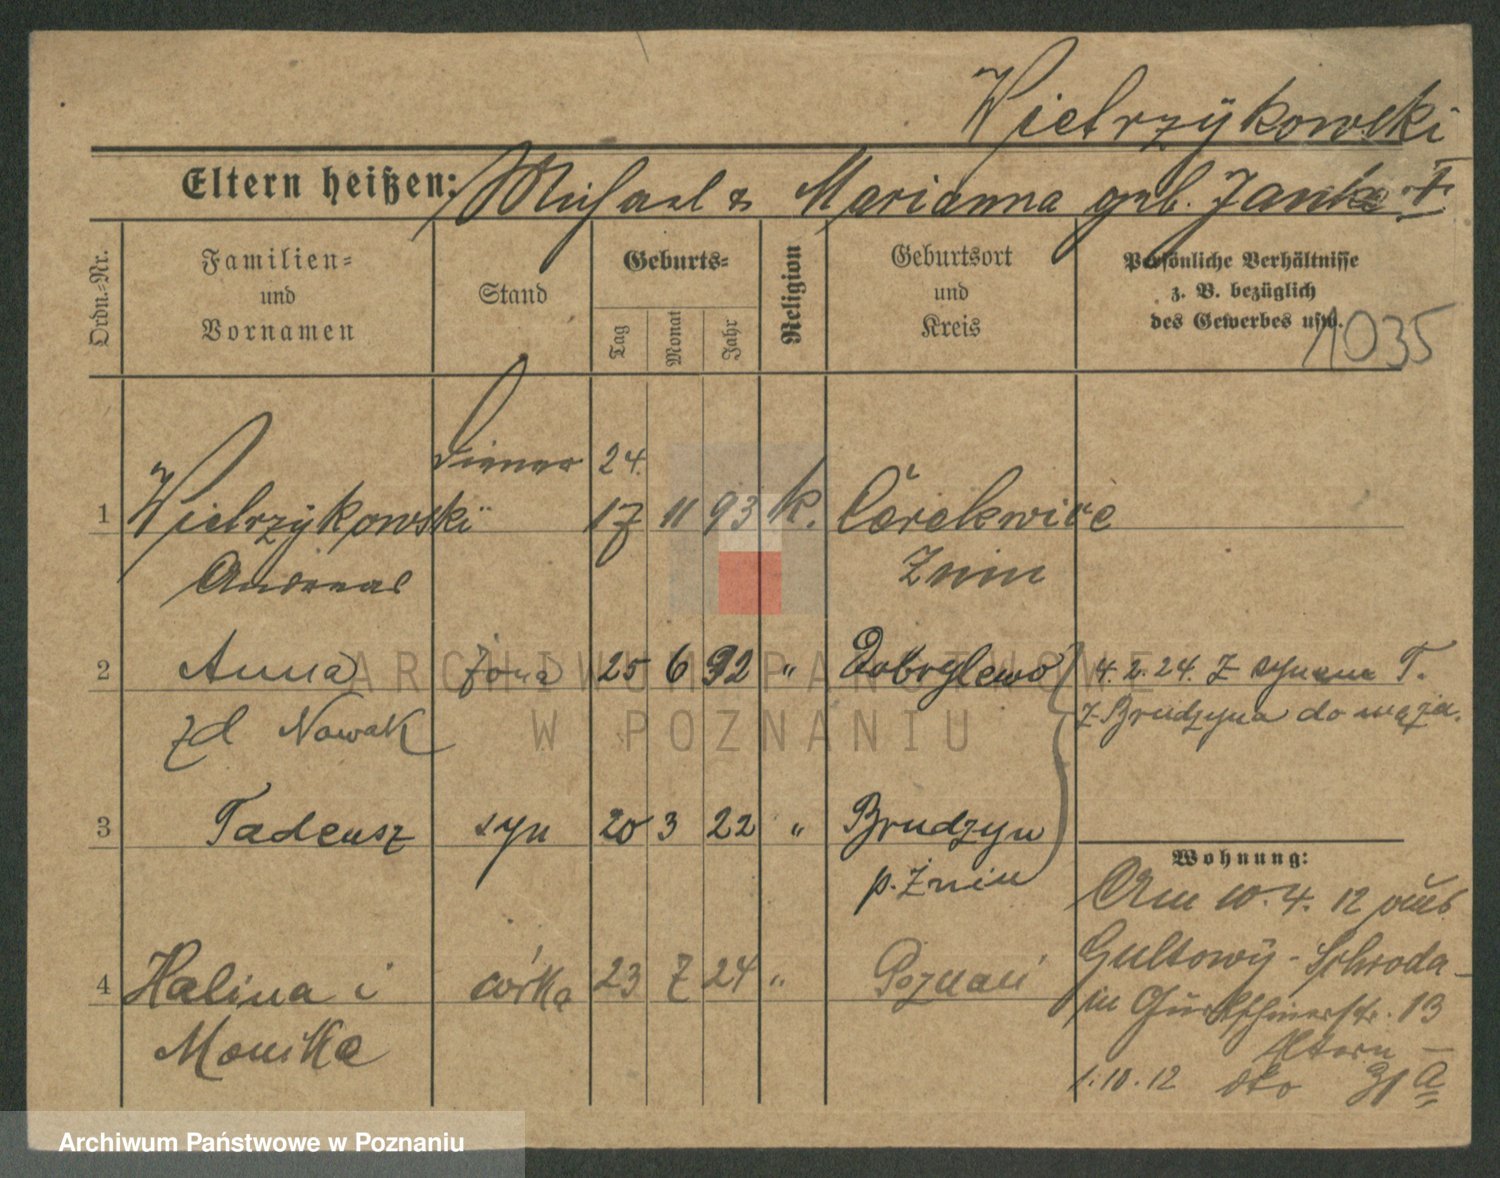 Wietrzykowski
Eltern heißen: Michael & Marianna geb. Janka †
Ordn.-Nr.
Familien- und Vornamen
Stand
Geburts-
Tag
Monat
Jahr
Religion
Geburtsort und Kreis
Persönliche Verhältnisse
z. B. bezüglich
des Gewerbes usw.
1035
Diener 24.
1 Wietrzykowski 17 11 93 k. Cerekwice
Andreas Znin
2 Anna żona 25 6 92 " Dobrylewo 4. 2. 24. z synem T.
zd Nowak z Brudzyna do męża.
3 Tadeusz syn 20 3 22 " Brudzyn
p. Żnin
Wohnung:
Am 10. 4. 12 aus
4 Halina i córka 23 7 24 " Poznań
Monika
Gultowy - Schroda
in 13
Eltern
1. 10. 12 dto 31 a
ARCHIWUM PAŃSTWOWE
W POZNANIU
Archiwum Państwowe w Poznaniu